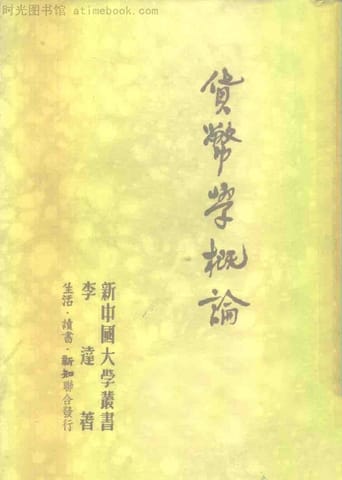 时光图书馆 atimebook.com
貨幣学概論
新中國大學叢書
李達著
生活·讀書·新知聯合發行